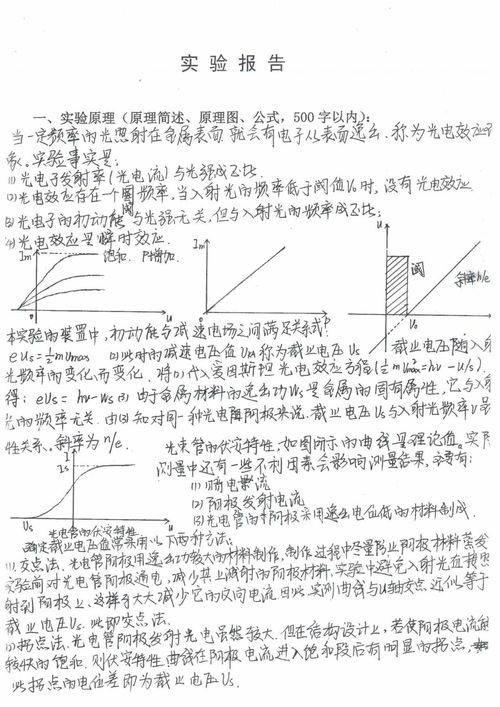 实验报告
一、实验原理（原理简述、原理图、公式，500字以内）：
当一定频率的光照射在金属表面就会有电子从表面逸出，称为光电效应现
象，实验事实是：
(1)光电子发射率(光电流)与光强成正比
(2)光电效应存在一个阈频率，当入射光的频率低于阈值V0时，没有光电效应
(3)光电子的初动能与光强无关，但与入射光的频率成正比；
(4)光电效应是瞬时效应.
Im 饱和. P增加.
Im
U
阈
斜率h/e
0 U
0 P
V0 V
本实验的装置中，初动能与减速电场之间满足关系式：
eUs=½mV²max (1)此时的减速电压值Us称为截止电压Us 截止电压随入射
光频率的变化而变化. 将(1)代入爱因斯坦光电效应方程(½mV²max=hv-Ws)
得：eUs=hv-Ws(3) 由于金属材料的逸出功Ws是金属的固有属性，它与入射
光的频率无关. 由(3)知对同一种光电阴极来说，截止电压Us与入射光频率v呈
性关系，斜率为h/e.
光束管的伏安特性，如图所示的曲线是理论值。实际
I
Is
测量中还有一些不利因素会影响测量结果，主要有：
(1)暗电流
(2)阳极发射电流
(3)光电管的阳极采用逸出电位低的材料制成.
Us U
光电管的伏安特性
确定截止电压值常采用以下两种方法：
(1)交点法. 光电管阳极用逸出功较大的材料制作，制作过程中尽量防止阳极材料蒸发
实验前对光电管阳极通电，减少其上溅射的阴极材料，实验中避免入射光直接照
射到阳极上，这样可大大减少它的反向电流因此实测曲线与U轴交点近似等于
截止电压Us. 此即交点法.
(2)拐点法. 光电管阳极发射光电虽然较大，但在结构设计上，若使阳极电流能
较快的饱和. 则伏安特性曲线在阳极电流进入饱和段后有明显的拐点，
此拐点的电位差即为截止电压Us.